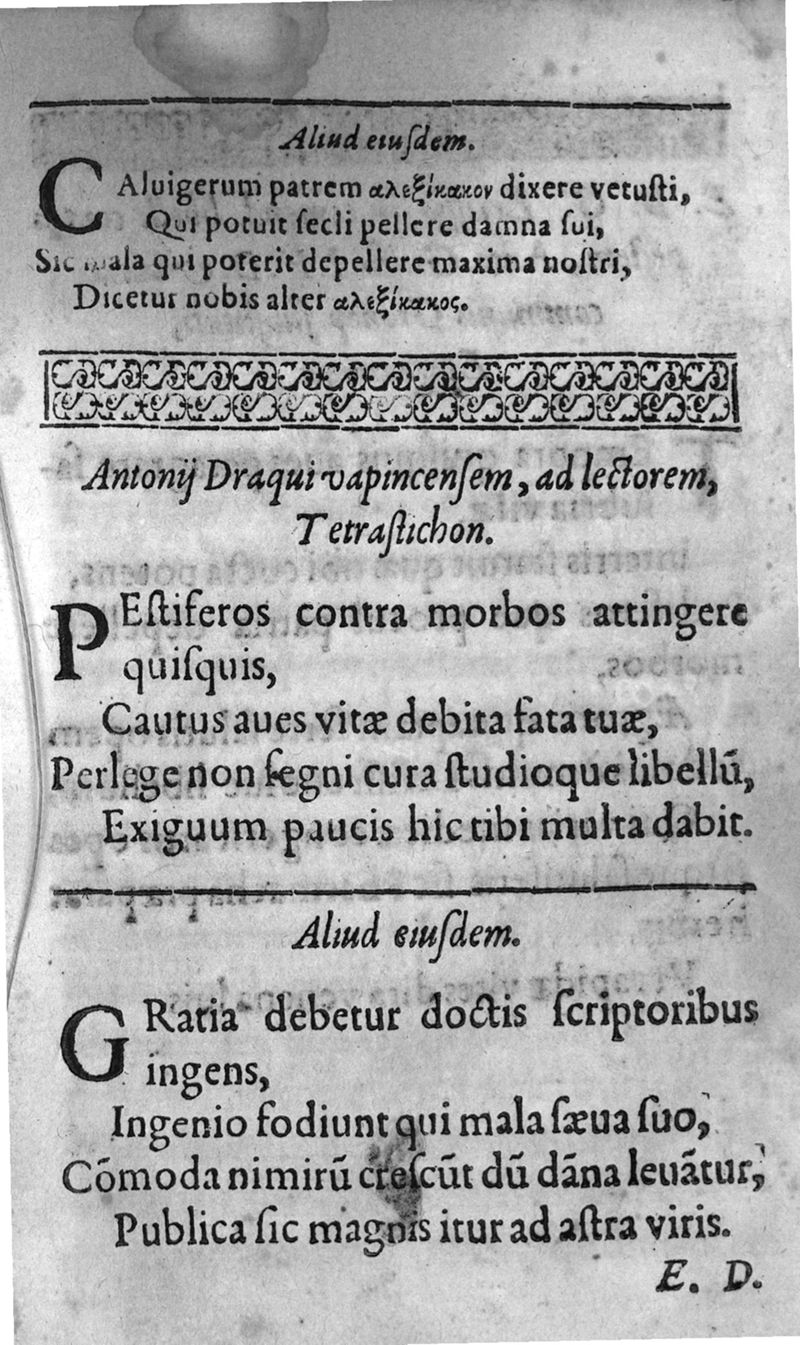 Aliud eiuſdem.
CAluigerum patrem αλεξίκακον dixere vetuſti,
Qui potuit ſecli pellere damna ſui,
Sic mala qui poterit depellere maxima noſtri,
Dicetur nobis alter αλεξίκακος.
Antonij Draqui vapincenſem, ad lectorem,
Tetraſtichon.
PEſtiferos contra morbos attingere
quiſquis,
Cautus aues vitæ debita fata tuæ,
Perlege non ſegni cura ſtudioque libellū,
Exiguum paucis hic tibi multa dabit.
Aliud eiuſdem.
GRatia debetur doctis ſcriptoribus
ingens,
Ingenio fodiunt qui mala ſæua ſuo,
Cōmoda nimirū creſcūt dū dāna leuātur,
Publica ſic magnis itur ad aſtra viris.
E. D.